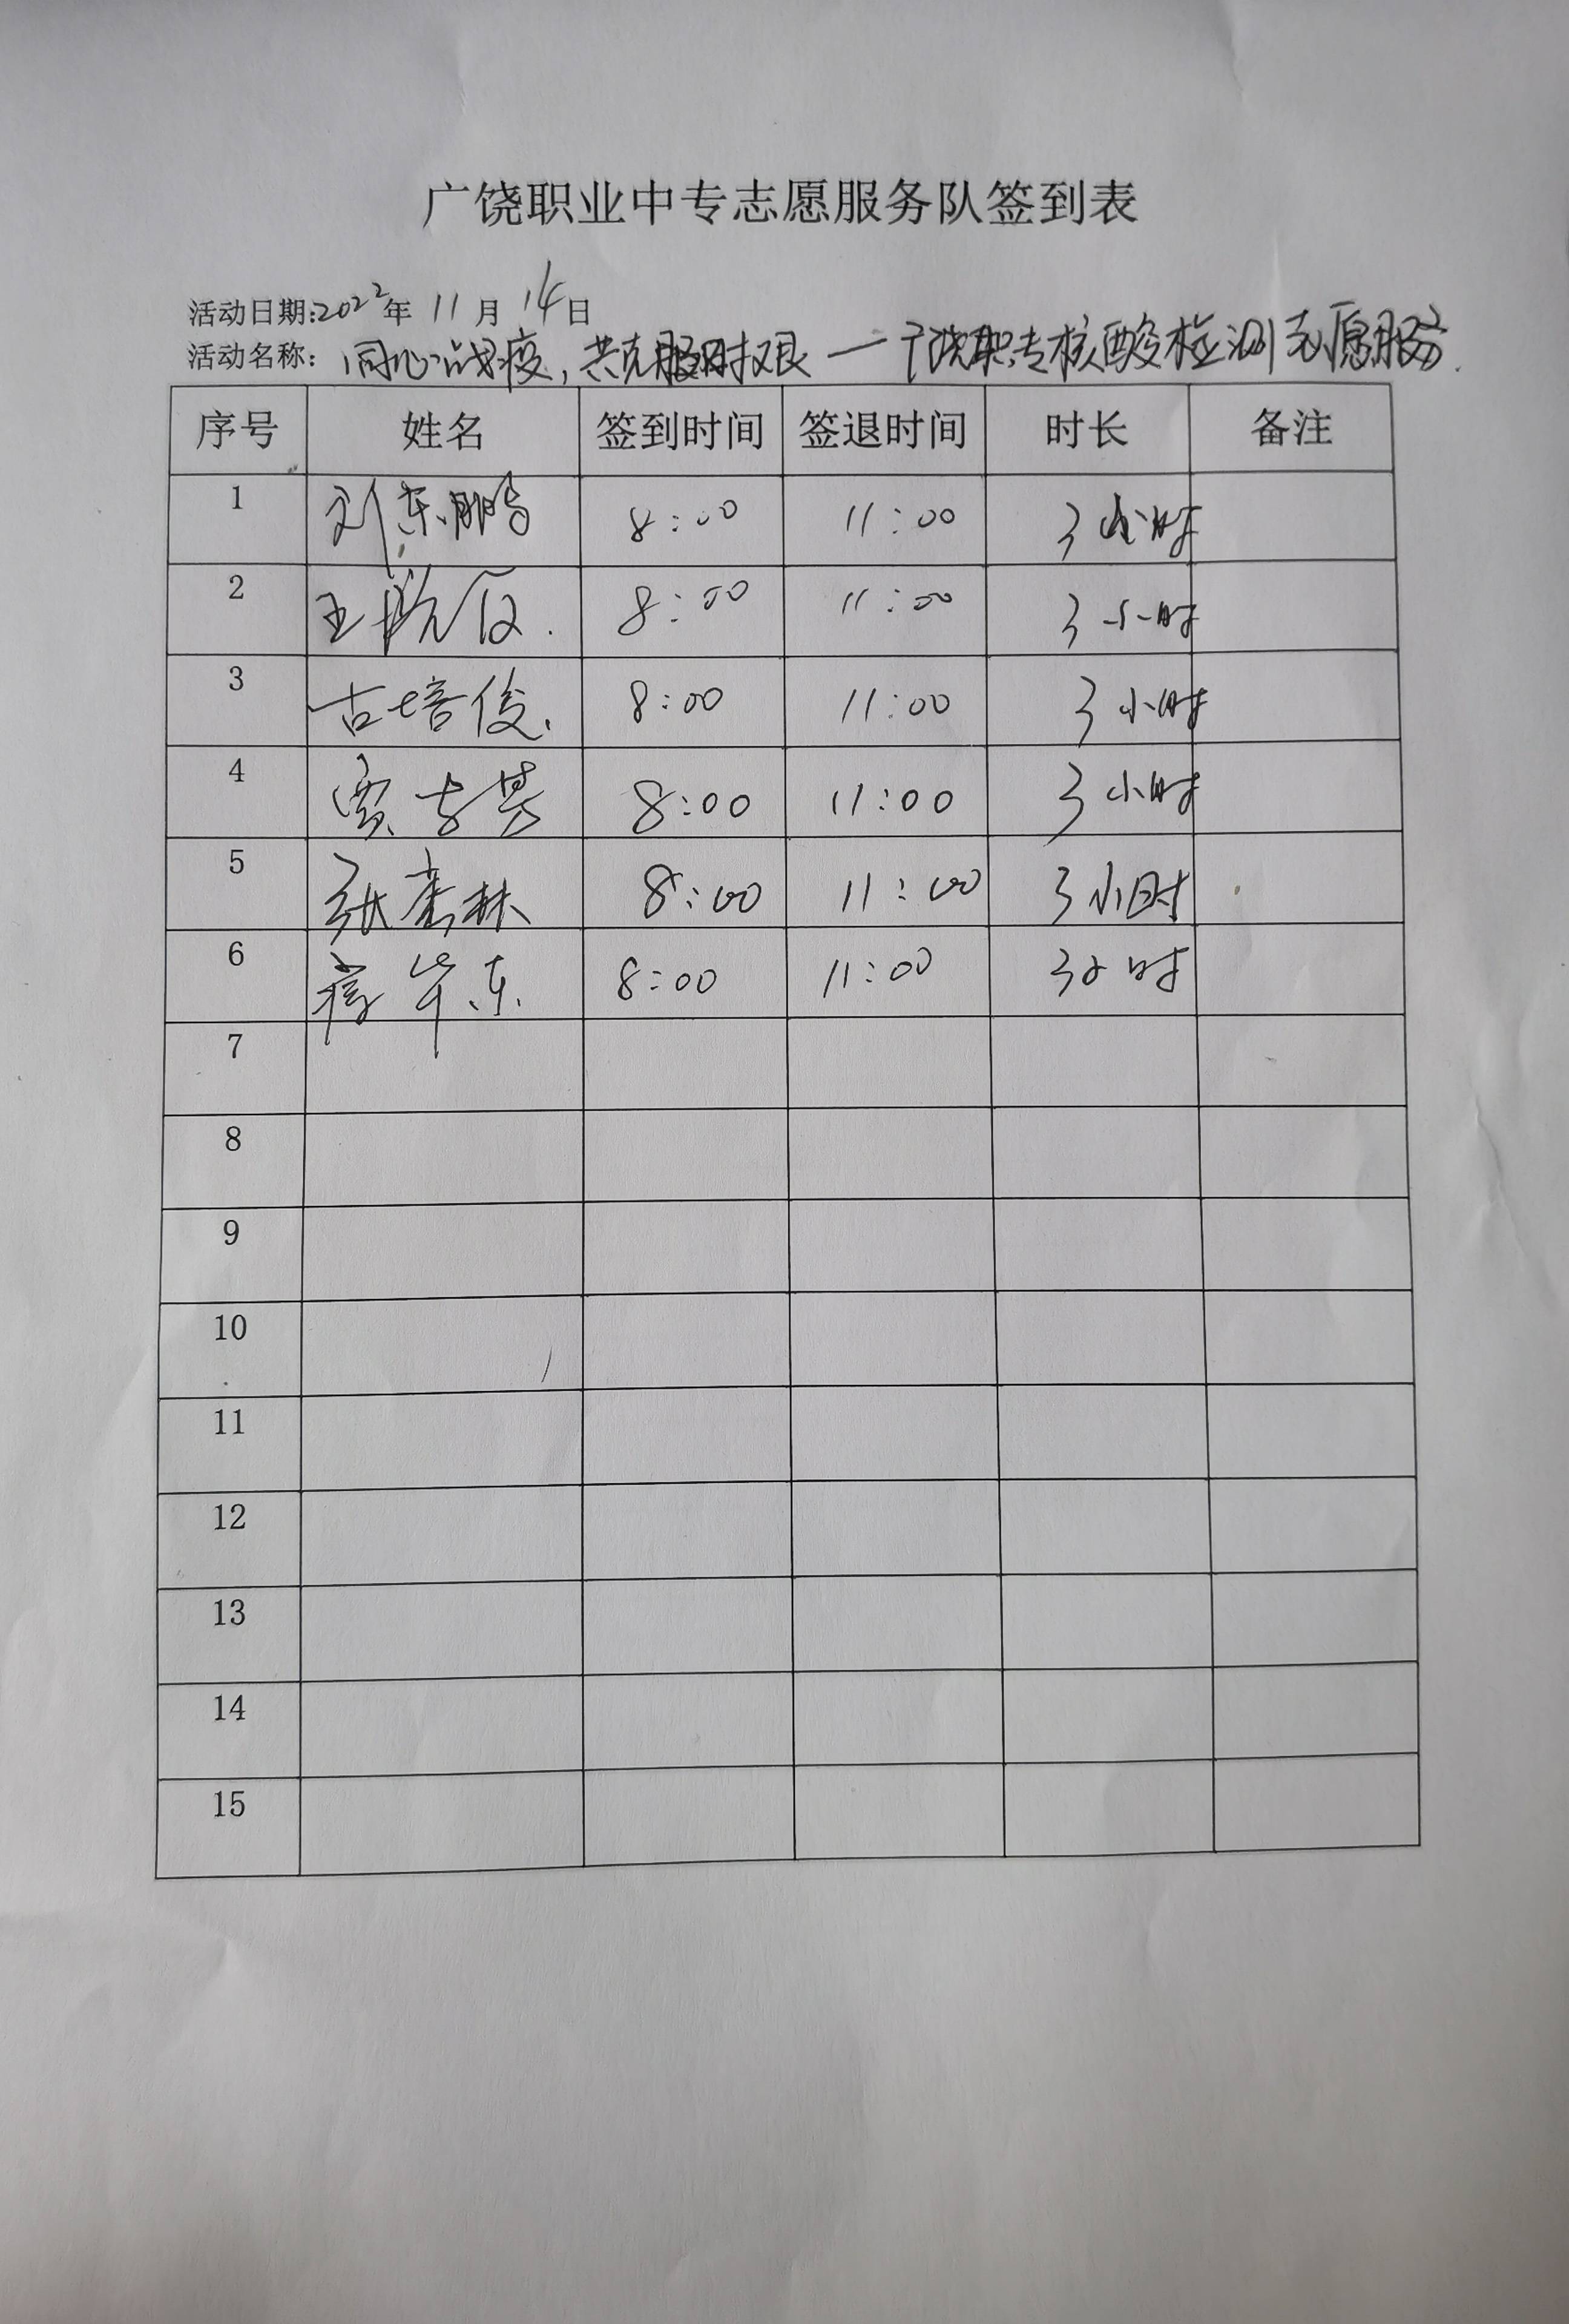 广饶职业中专志愿服务队签到表
活动日期:2022年 11月 14日
活动名称: 同心战疫,共克时艰 — 广饶职专核酸检测志愿服务.
序号 姓名 签到时间 签退时间 时长 备注
1 刘东鹏 8:00 11:00 3小时
2 王 8:00 11:00 3小时
3 古培俊. 8:00 11:00 3小时
4 贾 8:00 11:00 3小时
5 张 林 8:00 11:00 3小时
6 8:00 11:00 3小时
7
8
9
10
11
12
13
14
15